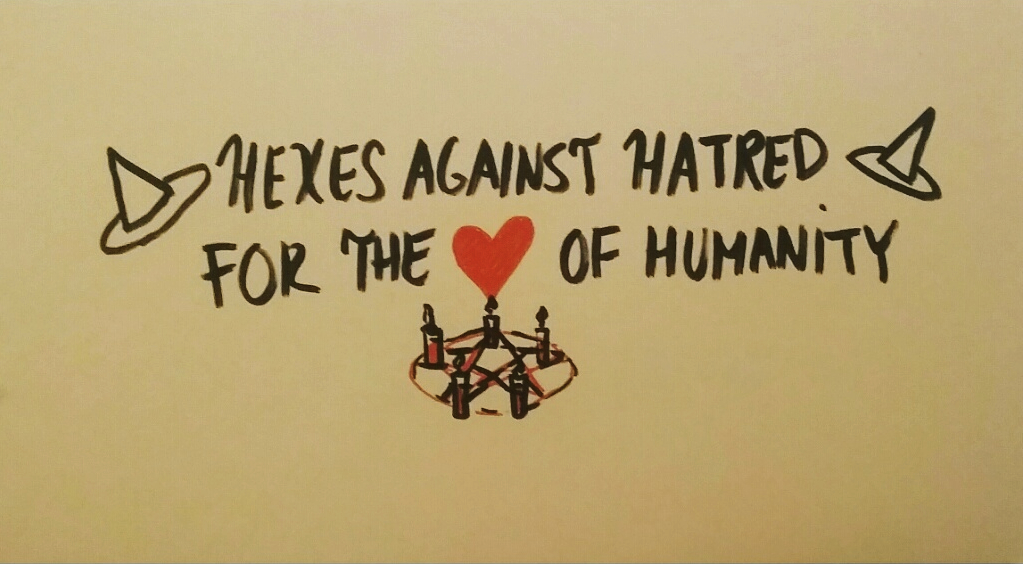 HEXES AGAINST HATRED
FOR THE ❤ OF HUMANITY